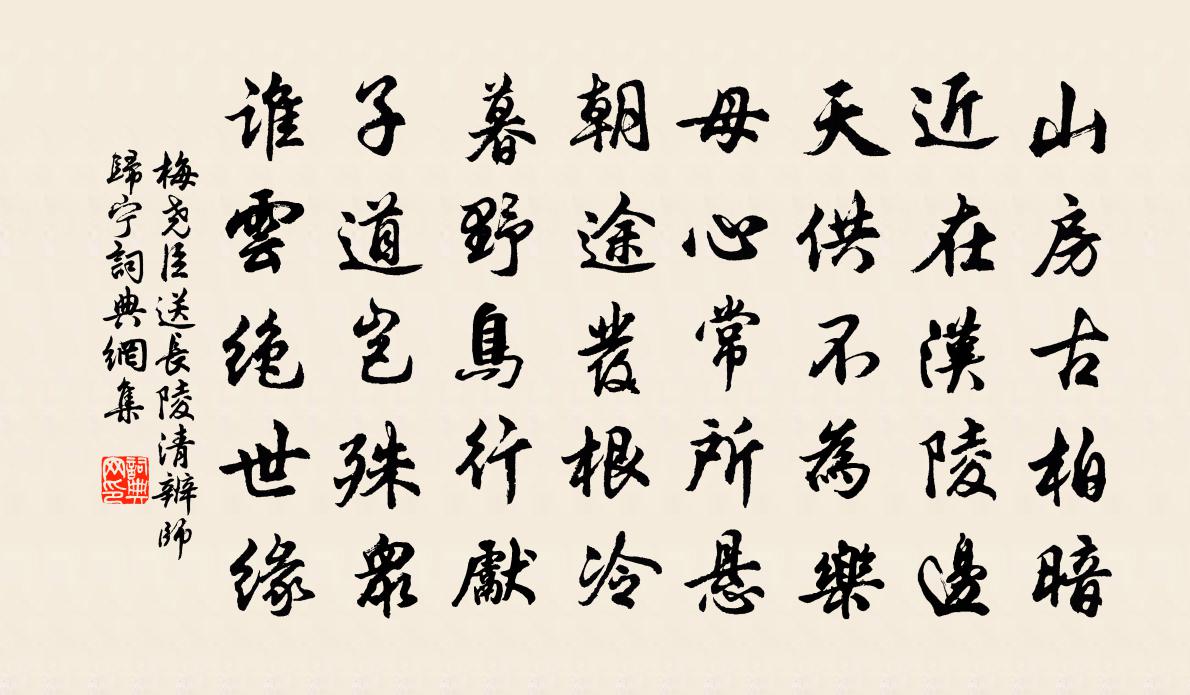 山房古柏暗
近在漢陵邊
天供不為樂
母心常所懸
朝途發根冷
暮野鳥行獻
子道豈殊眾
誰雲絶世緣
梅堯臣送長陵清辨師
歸宁詞典網集
詞典网印